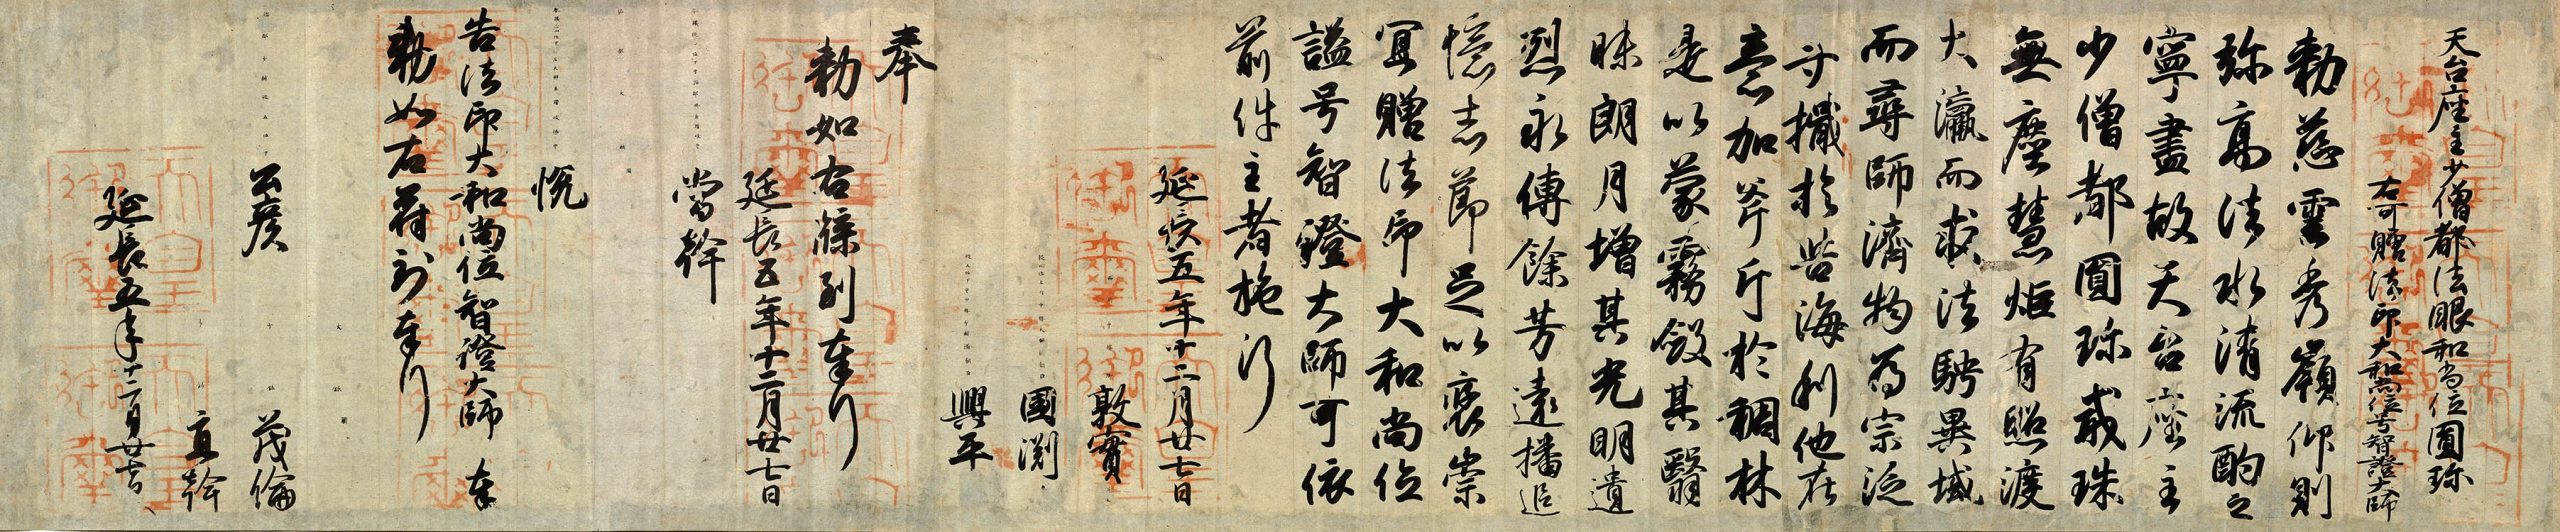 天台座主少僧都法眼和尚位圓珎
右可贈法印大和尚位号智證大師
勅慈雲秀嶺仰則
弥高法水清流酌之
寧盡故天台座主
少僧都圓珎戒珠
無塵慧炬有照渡
大瀛而求法騁異域
而尋師濟物為宗泛
舟檝於苦海利他在
意加斧斤於稠林
是以蒙霧斂其翳
昧朗月增其光明遺
烈永傳餘芳遠播追
憶志節足以褒崇
冝贈法印大和尚位
謚号智證大師可依
前件主者施行
延長五年十二月廿七日
敦實
國淵
興平
奉
勅如右牒到奉行
延長五年十二月廿七日
當幹
恱
告法印大和尚位智證大師奉
勅如右符到奉行
公彦
茂倫
直幹
延長五年十二月廿七日